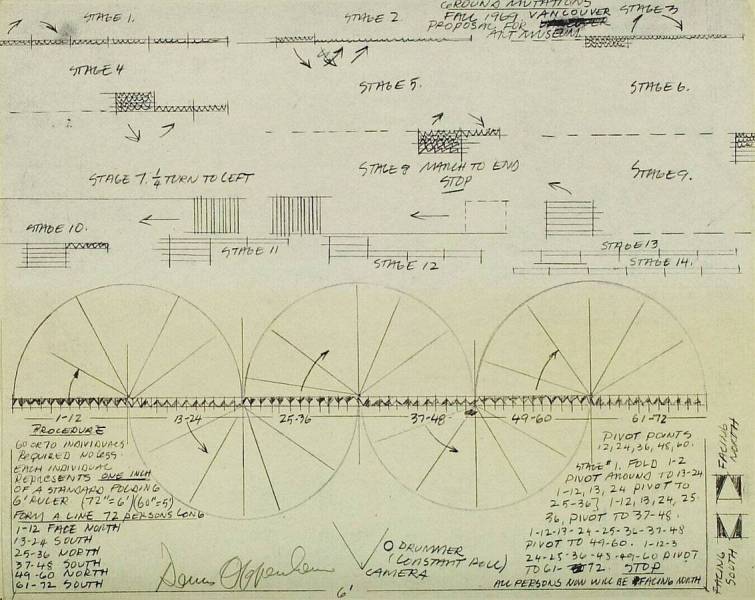 GROUND MUTATIONS
FALL 1969 VANCOUVER
PROPOSAL FOR
ART MUSEUM
STAGE 1.
STAGE 2
STAGE 3
STAGE 4
STAGE 5.
STAGE 6.
STAGE 7. 1/4 TURN TO LEFT
STAGE 8 MARCH TO END
STOP
STAGE 9.
STAGE 10.
STAGE 11
STAGE 12
STAGE 13
STAGE 14.
1-12
13-24
25-36
37-48
49-60
61-72
PROCEDURE
60 OR 70 INDIVIDUALS
REQUIRED NO LESS.
EACH INDIVIDUAL
REPRESENTS ONE INCH
OF A STANDARD FOLDING
6' RULER (72"=6')(60"=5')
FORM A LINE 72 PERSONS LONG
1-12 FACE NORTH
13-24 SOUTH
25-36 NORTH
37-48 SOUTH
49-60 NORTH
61-72 SOUTH
Dennis Oppenheim
6'
DRUMMER
(CONSTANT ROLL)
CAMERA
PIVOT POINTS
12, 24, 36, 48, 60.
STAGE #1. FOLD 1-2
PIVOT AROUND TO 13-24
1-12, 13, 24 PIVOT TO
25-36} 1-12, 13, 24, 25
36, PIVOT TO 37-48.
1-12-17-24-25-36-37-48
PIVOT TO 49-60. 1-12-3
24-25-36-48-49-60 PIVOT
TO 61-72. STOP
ALL PERSONS NOW WILL BE FACING NORTH
FACING
NORTH
FACING
SOUTH